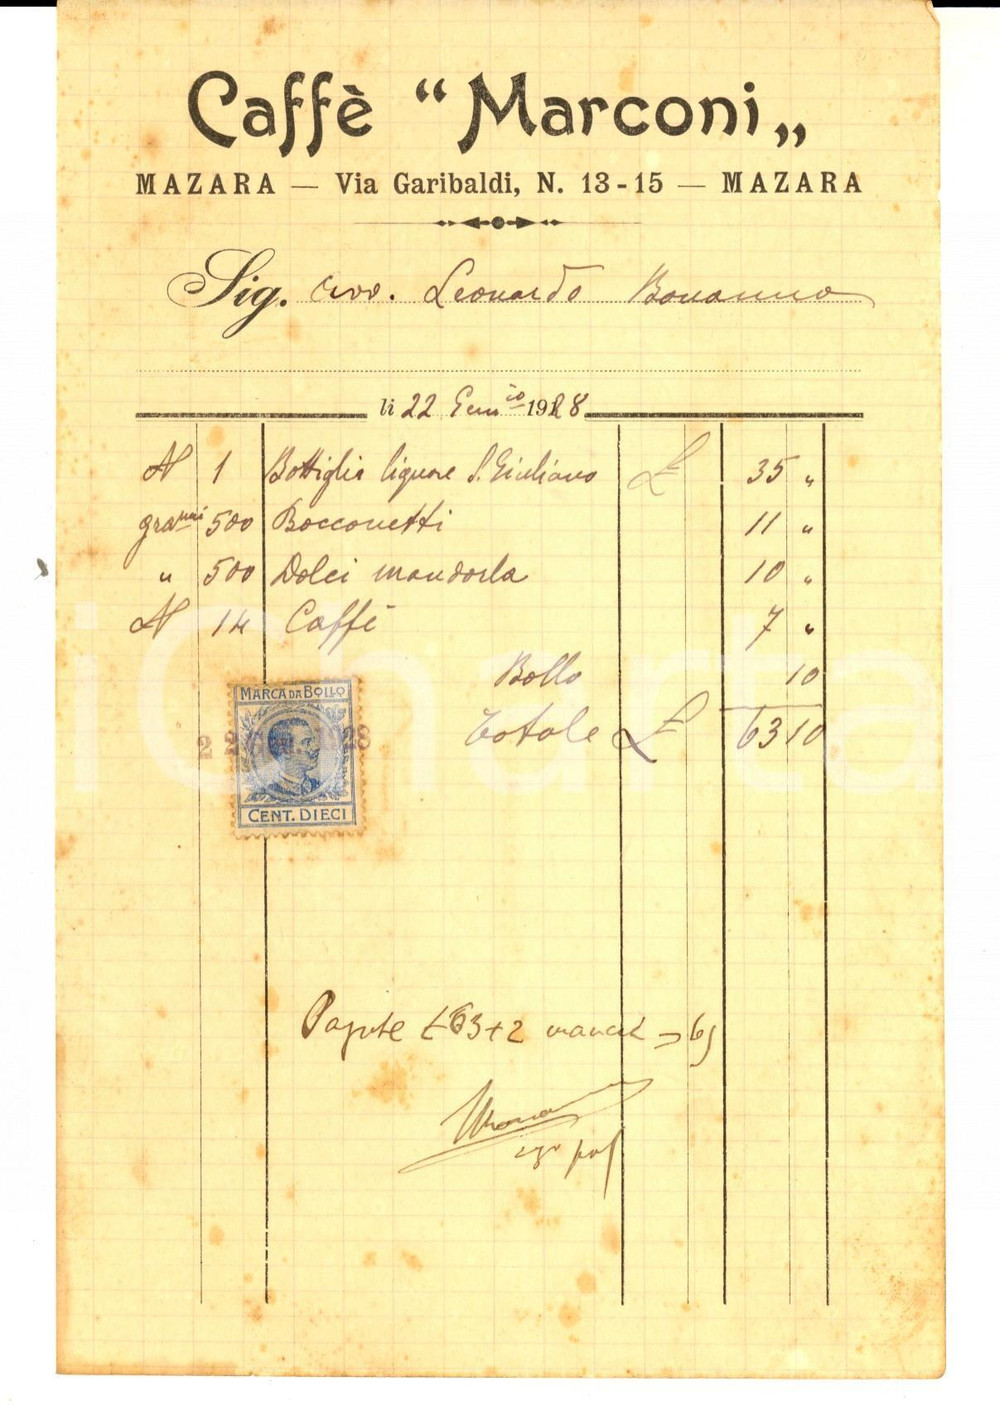 Caffè “ Marconi „
MAZARA — Via Garibaldi, N. 13-15 — MAZARA
Sig. Avv. Leonardo Bonanno
li 22 Genn io 1928
N 1 Bottiglia liquore S. Giuliano £ 35 "
grammi 500 Bocconetti 11 "
" 500 Dolci mandorla 10 "
N 14 Caffè 7 "
Bollo 10
Totale £ 63 10
MARCA DA BOLLO
2 2 GEN. 1928
CENT. DIECI
Pagate £ 63+2 mancia = 65
iCharta